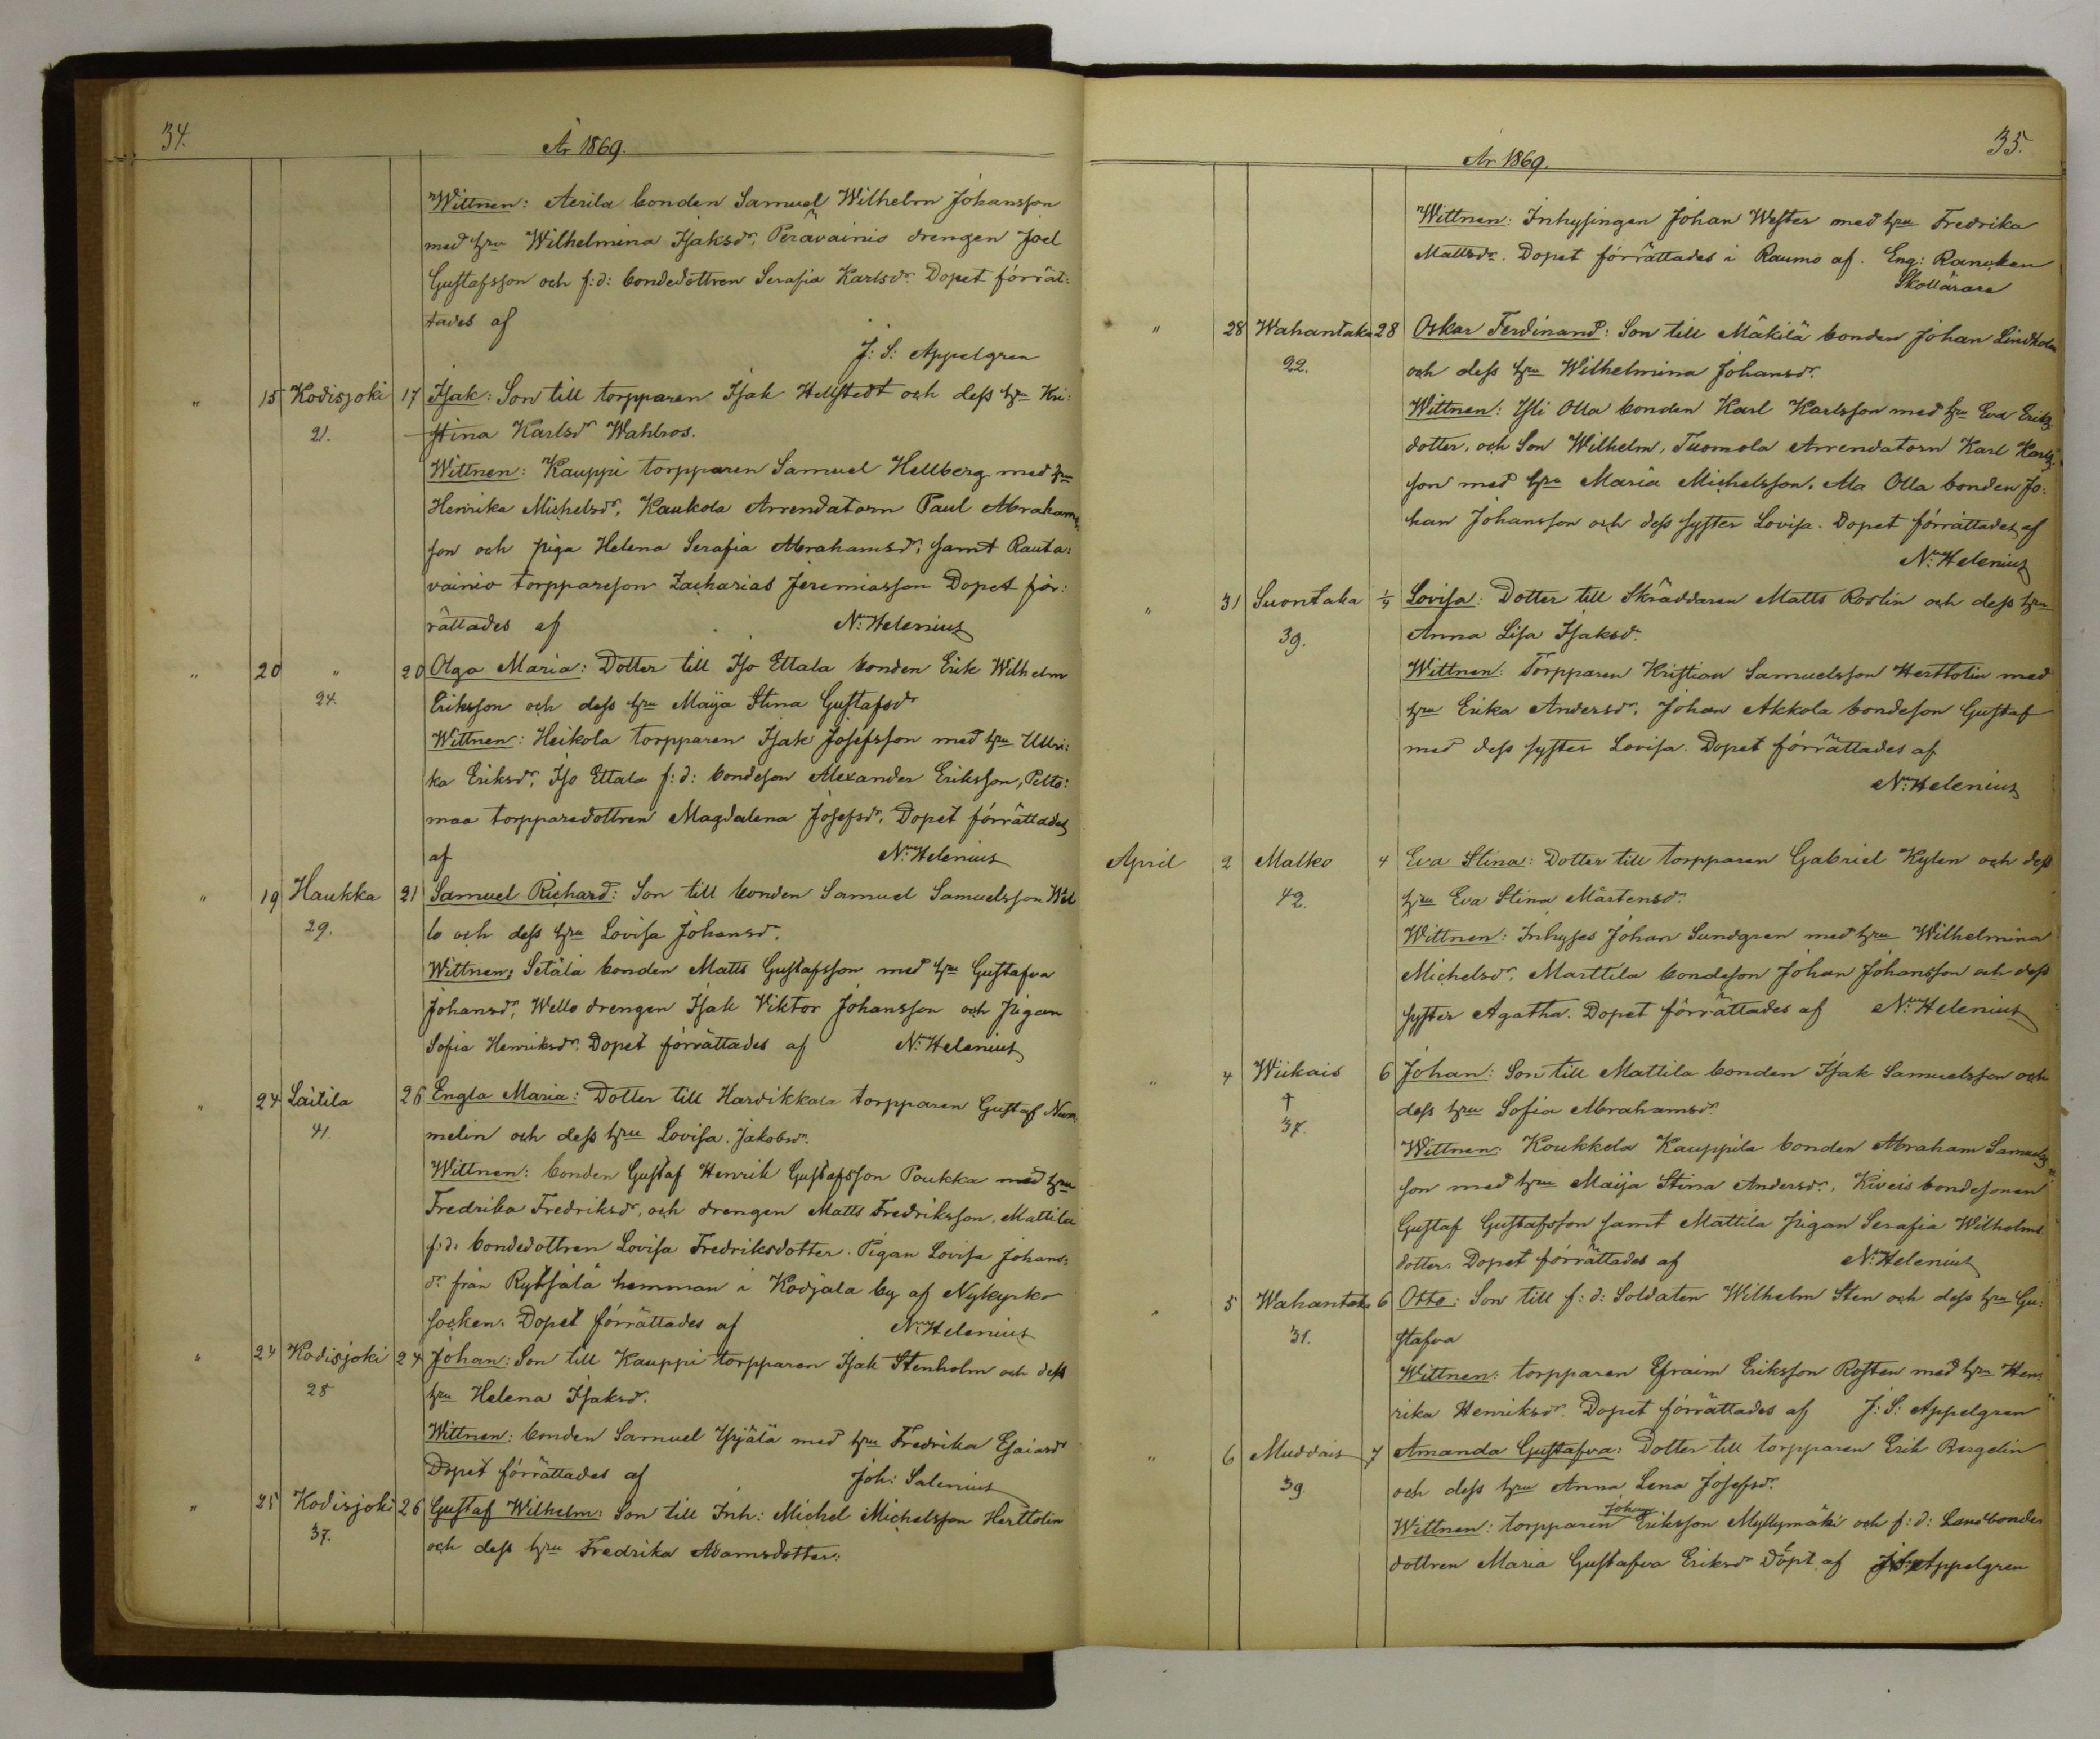 34.
År 1869.
Wittnen: Aerila bonden Samuel Wilhelm Johansson
med hru Wilhelmina Isaksdr, Perävainio drengen Joel
Gustafsson och f:d: bondedottren Serafia Karlsdr. Dopet förrät:
tades af
J: S: Appelgren
" 15 Kodisjoki 17 Isak: Son till torpparen Isak Hellstedt och dess hru Kri:
21. stina Karlsdr Wahlros.
Wittnen: Kauppi torpparen Samuel Hellberg med hru
Henrika Michelsdr, Kaukola Arrendatorn Paul Abrahams
son och piga Helena Serafia Abrahamsdr, samt Rauta:
vainio torppareson Zacharias Jeremiasson Dopet för:
rättades af N: Helenius
" 20 " 20 Olga Maria: Dotter till Iso Ettala bonden Erik Wilhelm
24. Eriksson och dess hru Maija Stina Gustafsdr
Wittnen: Heikola torpparen Isak Josefsson med hru Ulri:
ka Eriksdr, Iso Ettala f:d: bondeson Alexander Eriksson, Pelto:
maa torpparedottren Magdalena Josefsdr. Dopet förrättades
af N: Helenius
" 19 Haukka 21 Samuel Richard: Son till bonden Samuel Samuelsson Wel
29. lo och dess hru Lovisa Johansdr.
Wittnen: Setälä bonden Matts Gustafsson med hru Gustafva
Johansdr, Wello drengen Isak Viktor Johansson och Pigan
Sofia Henriksdr. Dopet förrättades af N: Helenius
" 24 Laitila 26 Engla Maria: Dotter till Harvikkala torpparen Gustaf Num
41. melin och dess hru Lovisa Jakobsdr.
Wittnen: bonden Gustaf Henrik Gustafsson Poukka med hru
Fredrika Fredriksdr, och drengen Matts Fredriksson, Mattila
f:d: bondedottren Lovisa Fredriksdotter. Pigan Lovisa Johans:
dr från hemman i Kodjala by af Nykyrko
socken. Dopet förrättades af N: Helenius
" 24 Kodisjoki 24 Johan: Son till Kauppi torpparen Isak Stenholm och dess
28 hru Helena Isaksdr.
Wittnen: bonden Samuel Yrjälä med hru Fredrika Esaiasdr
Dopet förrättades af Joh: Salenius
" 25 Kodisjoki 26 Gustaf Wilhelm: Son till Inh: Michel Michelsson Herttolin
37. och dess hru Fredrika Adamsdotter.
35.
År 1869.
Wittnen: Inhysingen Johan Wester med hru Fredrika
Mattsdr. Dopet förrättades i Raumo af. Eng: Rancken
Skollärare
" 28 Wahantaka 28 Oskar Ferdinand: Son till Mäkilä bonden Johan Lindholm
22. och dess hru Wilhelmina Johansdr.
Wittnen: Yli Olla bonden Karl Karlsson med hru Eva Eriks
dotter, och Son Wilhelm, Tuomola Arrendatorn Karl Karls
son med hru Maria Michelsson. Ala Olla bonden Jo:
han Johansson och dess syster Lovisa. Dopet förrättades af
N: Helenius
" 31 Suontaka 1/4 Lovisa: Dotter till Skräddaren Matts Roslin och dess hru
39. Anna Lisa Isaksdr.
Wittnen: Torpparen Kristian Samuelsson Herttolin med
hru Erika Andersdr, Johan Akkola bondeson Gustaf
med dess syster Lovisa. Dopet förrättades af
N: Helenius
April 2 Malko 4 Eva Stina: Dotter till torpparen Gabriel Kylen och dess
42. hru Eva Stina Mårtensdr.
Wittnen: Inhyses Johan Sundgren med hru Wilhelmina
Michelsdr. Marttila bondeson Johan Johansson och dess
syster Agatha. Dopet förrättades af N: Helenius
" 4 Wiikais 6 Johan: Son till Mattila bonden Isak Samuelsson och
† dess hru Sofia Abrahamsdr.
37. Wittnen: Koukkela Kauppila bonden Abraham Samuels
son med hru Maija Stina Andersdr. Kiveis bondesonen
Gustaf Gustafsson samt Mattila Pigan Serafia Wilhelms
dotter. Dopet förrättades af N: Helenius
" 5 Wahantaka 6 Otto: Son till f:d: Soldaten Wilhelm Sten och dess hru Gu:
31. stafva
Wittnen: torpparen Efraim Eriksson Rosten med hru Hen:
rika Henriksdr. Dopet förrättades af J: S: Appelgren
" 6 Muddais 7 Amanda Gustafva: Dotter till torpparen Erik Bergelin
39. och dess hru Anna Lena Josefsdr.
Wittnen: torpparen Johan Eriksson Myllymäki och f:d: Landbonde
dottren Maria Gustafva Eriksdr Döpt af J: S: Appelgren